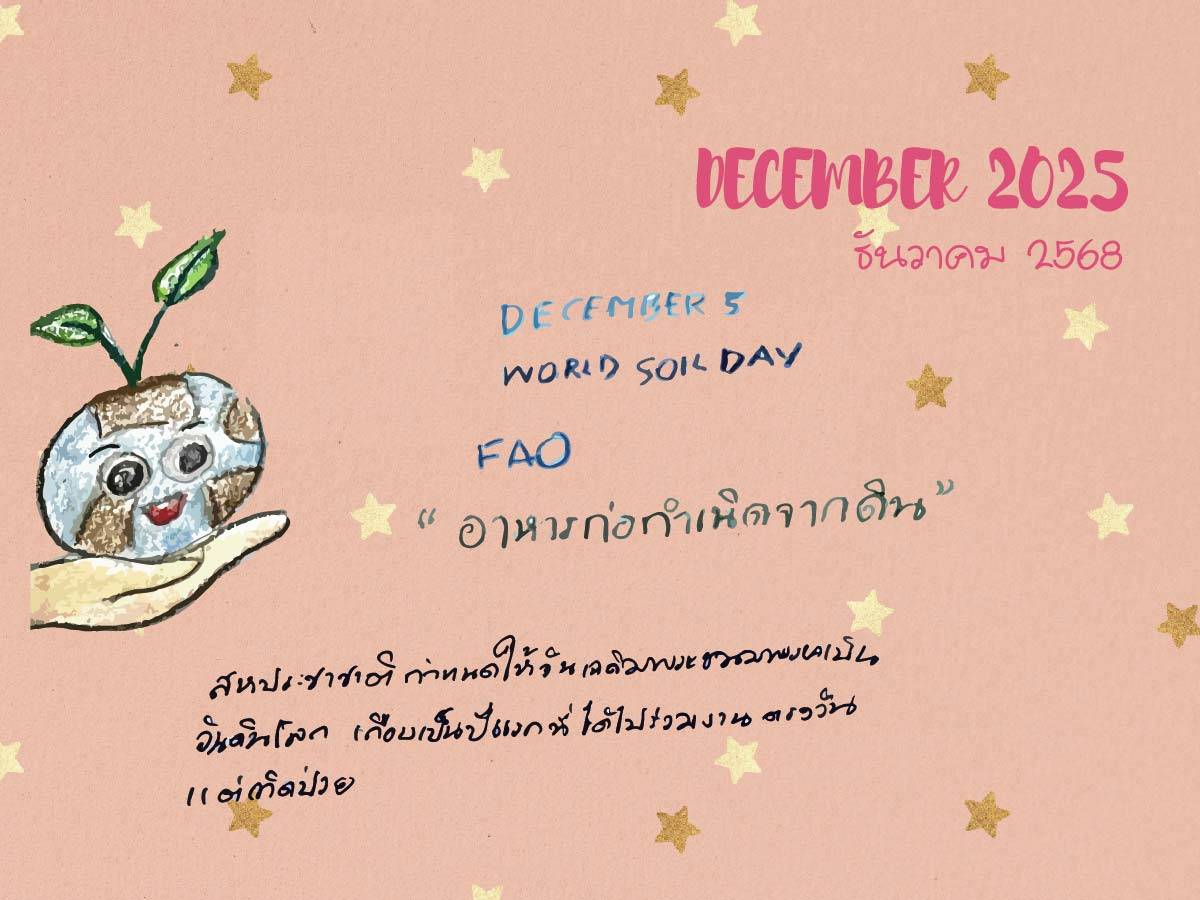 DECEMBER 2025
ธันวาคม 2568
DECEMBER 5
WORLD SOIL DAY
FAO
“ อาหารก่อกำเนิดจากดิน ”
สหประชาชาติ กำหนดให้วันเฉลิมพระชนมพรรษาเป็น
วันดินโลก เกือบเป็นปีแรกที่ได้ไปร่วมงาน ตรงวัน
แต่เกิดป่วย